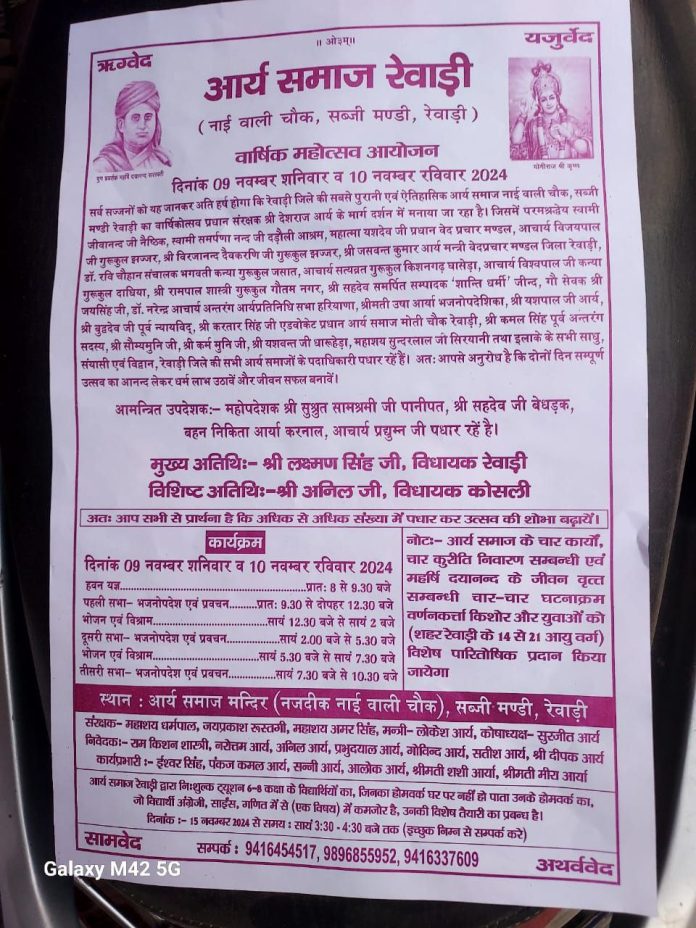 ॥ ओ३म्॥
ऋग्वेद
यजुर्वेद
आर्य समाज रेवाड़ी
( नाई वाली चौक, सब्जी मण्डी, रेवाड़ी )
युग प्रवर्तक महर्षि दयानन्द सरस्वती
योगीराज श्री कृष्ण
वार्षिक महोत्सव आयोजन
दिनांक 09 नवम्बर शनिवार व 10 नवम्बर रविवार 2024
सर्व सज्जनों को यह जानकर अति हर्ष होगा कि रेवाड़ी जिले की सबसे पुरानी एवं ऐतिहासिक आर्य समाज नाई वाली चौक, सब्जी
मण्डी रेवाड़ी का वार्षिकोत्सव प्रधान संरक्षक श्री देशराज आर्य के मार्ग दर्शन में मनाया जा रहा है। जिसमें परमश्रद्धेय स्वामी
जीवानन्द जी नैष्ठिक, स्वामी समर्पणा नन्द जी दड़ौली आश्रम, महात्मा यशदेव जी प्रधान वेद प्रचार मण्डल, आचार्य विजयपाल
जी गुरुकुल झज्जर, श्री विरजानन्द दैवकरणि जी गुरुकुल झज्जर, श्री जसवन्त कुमार आर्य मन्त्री वेदप्रचार मण्डल जिला रेवाड़ी,
डॉ. रवि चौहान संचालक भगवती कन्या गुरुकुल जसात, आचार्य सत्यव्रत गुरुकुल किशनगढ़ घासेड़ा, आचार्य विश्वपाल जी कन्या
गुरुकुल दाधिया, श्री रामपाल शास्त्री गुरुकुल गौतम नगर, श्री सहदेव समर्पित सम्पादक 'शान्ति धर्मी' जीन्द, गौ सेवक श्री
जयसिंह जी, डॉ. नरेन्द्र आचार्य अन्तरंग आर्यप्रतिनिधि सभा हरियाणा, श्रीमती उषा आर्या भजनोपदेशिका, श्री यशपाल जी आर्य,
श्री बुद्धदेव जी पूर्व न्यायविद्, श्री करतार सिंह जी एडवोकेट प्रधान आर्य समाज मोती चौक रेवाड़ी, श्री कमल सिंह पूर्व अन्तरंग
सदस्य, श्री सौम्यमुनि जी, श्री कर्म मुनि जी, श्री यशवन्त जी धारूहेड़ा, महाशय सुन्दरलाल जी सिरयानी तथा इलाके के सभी साधु,
संयासी एवं विद्वान, रेवाड़ी जिले की सभी आर्य समाजों के पदाधिकारी पधार रहें हैं। अतः आपसे अनुरोध है कि दोनों दिन सम्पूर्ण
उत्सव का आनन्द लेकर धर्म लाभ उठावें और जीवन सफल बनावें।
आमन्त्रित उपदेशकः- महोपदेशक श्री सुश्रुत सामश्रमी जी पानीपत, श्री सहदेव जी बेधड़क,
बहन निकिता आर्या करनाल, आचार्य प्रद्युम्न जी पधार रहें है।
मुख्य अतिथिः- श्री लक्ष्मण सिंह जी, विधायक रेवाड़ी
विशिष्ट अतिथिः-श्री अनिल जी, विधायक कोसली
अतः आप सभी से प्रार्थना है कि अधिक से अधिक संख्या में पधार कर उत्सव की शोभा बढ़ायें।
कार्यक्रम
दिनांक 09 नवम्बर शनिवार व 10 नवम्बर रविवार 2024
हवन यज्ञ..........प्रातः 8 से 9.30 बजे
पहली सभा- भजनोपदेश एवं प्रवचन..........प्रातः 9.30 से दोपहर 12.30 बजे
भोजन एवं विश्राम..........सायं 12.30 बजे से सायं 2 बजे
दूसरी सभा- भजनोपदेश एवं प्रवचन..........सायं 2.00 बजे से 5.30 बजे
भोजन एवं विश्राम..........सायं 5.30 बजे से सायं 7.30 बजे
तीसरी सभा- भजनोपदेश एवं प्रवचन..........सायं 7.30 बजे से 10.30 बजे
नोटः- आर्य समाज के चार कार्यों,
चार कुरीति निवारण सम्बन्धी एवं
महर्षि दयानन्द के जीवन वृत्त
सम्बन्धी चार-चार घटनाक्रम
वर्णनकर्त्ता किशोर और युवाओं को
(शहर रेवाड़ी के 14 से 21 आयु वर्ग)
विशेष पारितोषिक प्रदान किया
जायेगा
स्थान : आर्य समाज मन्दिर (नजदीक नाई वाली चौक), सब्जी मण्डी, रेवाड़ी
संरक्षक- महाशय धर्मपाल, जयप्रकाश रूस्तगी, महाशय अमर सिंह, मन्त्री- लोकेश आर्य, कोषाध्यक्ष- सुरजीत आर्य
निवेदकः- राम किशन शास्त्री, नरोत्तम आर्य, अनिल आर्य, प्रभुदयाल आर्य, गोविन्द आर्य, सतीश आर्य, श्री दीपक आर्य
कार्यप्रभारी :- ईश्वर सिंह, पंकज कमल आर्य, सन्नी आर्य, आलोक आर्य, श्रीमती शशी आर्या, श्रीमती मीरा आर्या
आर्य समाज रेवाड़ी द्वारा निःशुल्क ट्यूशन 6-8 कक्षा के विद्यार्थियों का, जिनका होमवर्क घर पर नहीं हो पाता उनके होमवर्क का,
जो विद्यार्थी अंग्रेजी, साईंस, गणित में से (एक विषय) में कमजोर है, उनकी विशेष तैयारी का प्रबन्ध है।
दिनांक :- 15 नवम्बर 2024 से समय : सायं 3:30 - 4:30 बजे तक (इच्छुक निम्न से सम्पर्क करे)
सामवेद
सम्पर्क : 9416454517, 9896855952, 9416337609
अथर्ववेद
Galaxy M42 5G